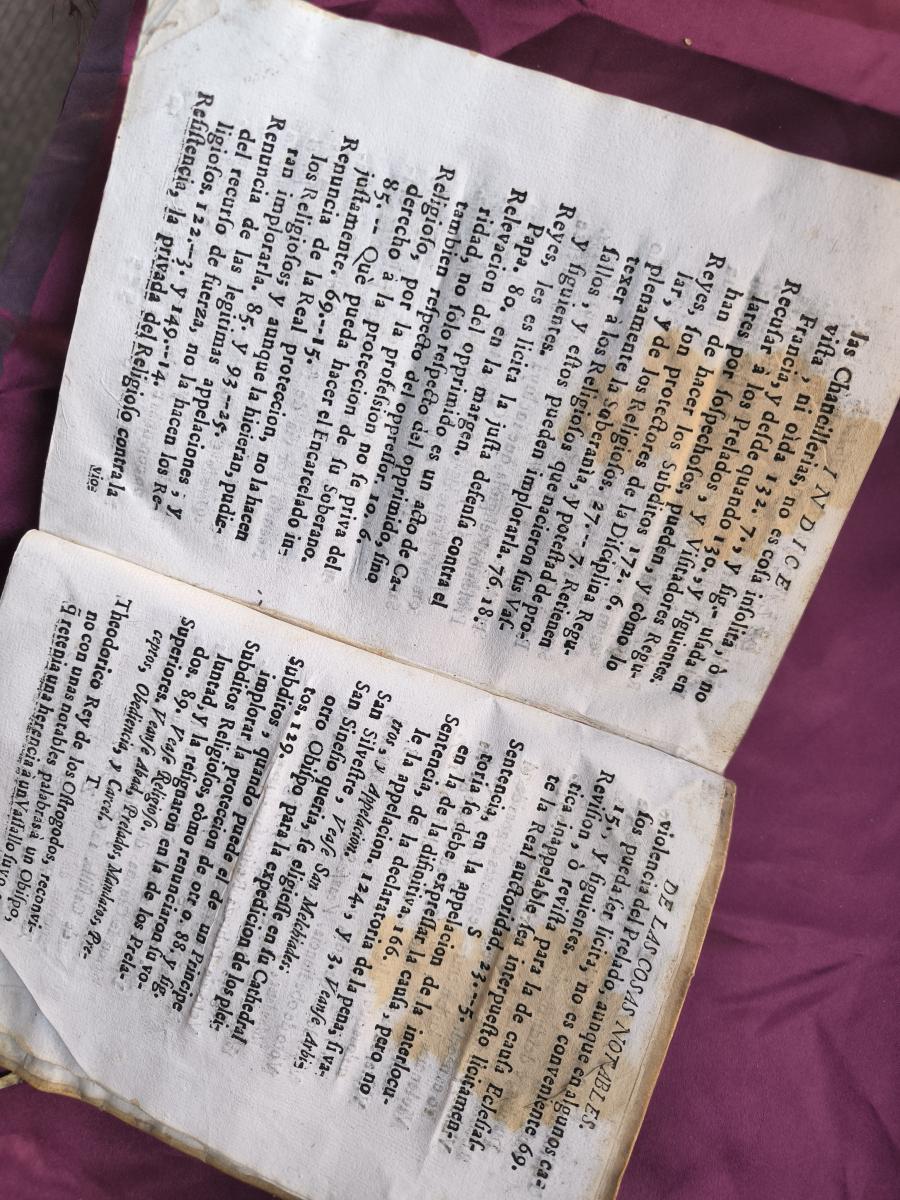 INDICE
las Chancillerias, no es cosa insolita, ò no
vista, ni oida 132. 7., y fig.-- usada en
Francia, y desde quando 130., y siguientes.
Recusar à los Prelados, y Visitadores Regu-
lares por sospechosos, pueden, y còmo lo
han de hacer los Subditos 172. 6.
Reyes, son protectores de la Diciplina Regu-
lar, y de los Religiosos. 27.--7. Retienen
plenamente la Soberania, y potestad de pro-
texer a los Religiosos que nacieron sus Vas-
sallos; y estos pueden implorarla. 76. 18.
y siguientes.
Reyes, les es licita la justa defensa contra el
Papa. 80. en la margen.
Relevacion del opprimido es un acto de Ca-
ridad, no solo respecto del opprimido, sino
tambien respecto del oppressor. 10. 6.
Religioso, por la profession no se priva del
derecho à la proteccion de su Soberano.
85.-- Què pueda hacer el Encarcelado in-
justamente. 69.--15.
Renuncia de la Real proteccion, no la hacen
los Religiosos, y aunque la hicieran, pudie-
ran implorarla, 85. y 93--25.
Renuncia de las legitimas appelaciones; y
del recurso de fuerza, no la hacen los Re-
ligiosos. 122.--3. y 149.--14.
Resistencia, la privada del Religioso contra la
vio=
DE LAS COSAS NOTABLES.
violencia del Prelado, aunque en algunos ca=
sos pueda ser licita, no es conveniente 69.
15., y siguientes.
Revision, ò revista para la de causa Eclesias-
tica inappelable, sea interpuesto licitamen-
te la Real auctoridad. 23.--5.
S
Sentencia, en la appelacion de la interlocu-
toria se debe expressar la causa, pero no
en la de la difinitiva, 166.
Sentencia, de la declaratoria de la pena, si va-
le la appelacion. 124., y 3. Vease Arbi-
tros, y Appelacion.
San Silvestre, Vease San Melchiades.
San Sinesio queria, se eligiesse en su Cathedral
otro Obispo para la expedicion de los plei-
tos. 129.
Subditos, quando puede el de un Principe
implorar la proteccion de otro. 88. y fig.
Subditos Religiosos, còmo renunciaron su vo-
luntad, y la resignaron en la de los Prela-
dos. 89. Vease Religioso.
Superiores. Vease Abad, Prelados, Mandatos, Pre-
ceptos, Obediencia, y Carcel.
T.
Theodorico Rey de los Ostrogodos, reconvi-
no con unas notables palabras à un Obispo,
q̃ retenia una herencia à un Vassallo suyo.